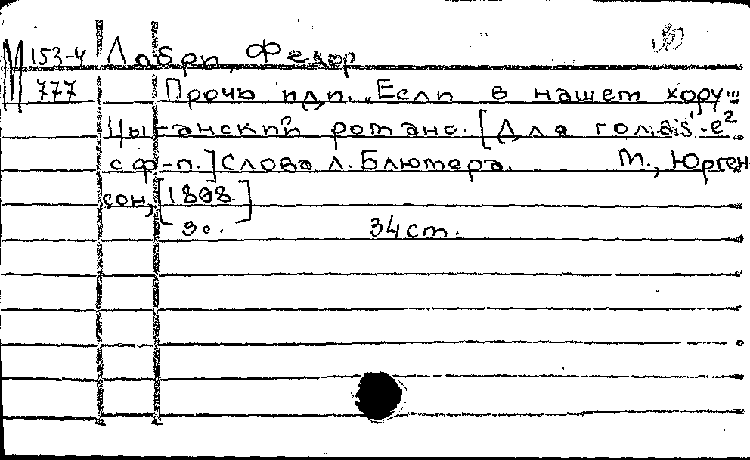 М 153-4 Лабри, Федор
777 Прочь иди. „Если в нашем хору...
Цыганский романс. [Для голоса d'-e²
с ф-п.] Слова Л. Блюмера. М., Юрген
сон, [1898]
3 с. 34 cm.